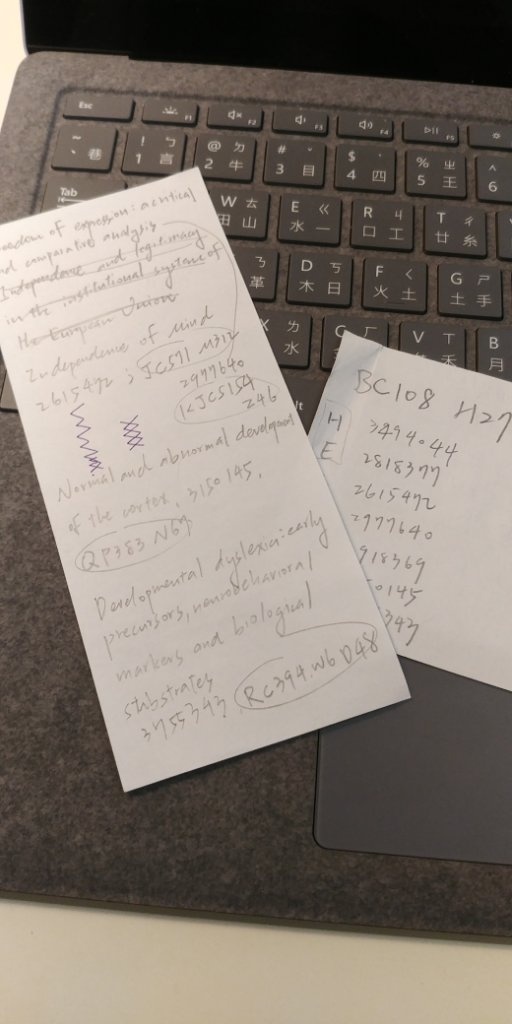 Esc F1 F2 F3 F4 F5
~ ` 巷 ! ㄅ 1 言 @ ㄉ 2 牛 # ˇ 3 目 $ ˋ 4 四 % ㄓ 5 王 ^ 6
Tab W ㄊ 田 山 E ㄍ 水 一 R ㄐ 口 工 T ㄔ 廿 糸
ㄋ 革 D ㄎ 木 日 F ㄑ 火 土 G ㄕ 土 手
ㄌ 水 V ㄒ 禾 B 月
freedom of expression: a critical
and comparative analysis
Independence and legitimacy
in the institutional system of
the European Union
Independence of mind
2615472 ; JC571 M312
2977640
KJC5154
Z46
Normal and abnormal development
of the cortex, 3150145,
QP383 N67
Developmental dyslexia: early
precursors, neurobehavioral
markers and biological
substrates
3755343 RC394.W6 D48
BC108 H27
H 3494044
E 2818377
2615472
2977640
918369
50145
343